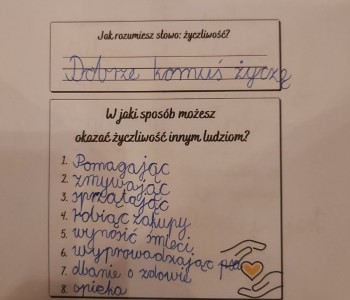 Jak rozumiesz słowo: życzliwość?
Dobrze komuś życzę
W jaki sposób możesz
okazać życzliwość innym ludziom?
1. Pomagając
2. zmywając
3. sprzątając
4. robiąc zakupy
5. wynosić śmieci
6. wyprowadzając psa
7. dbanie o zdrowie
8. opieka